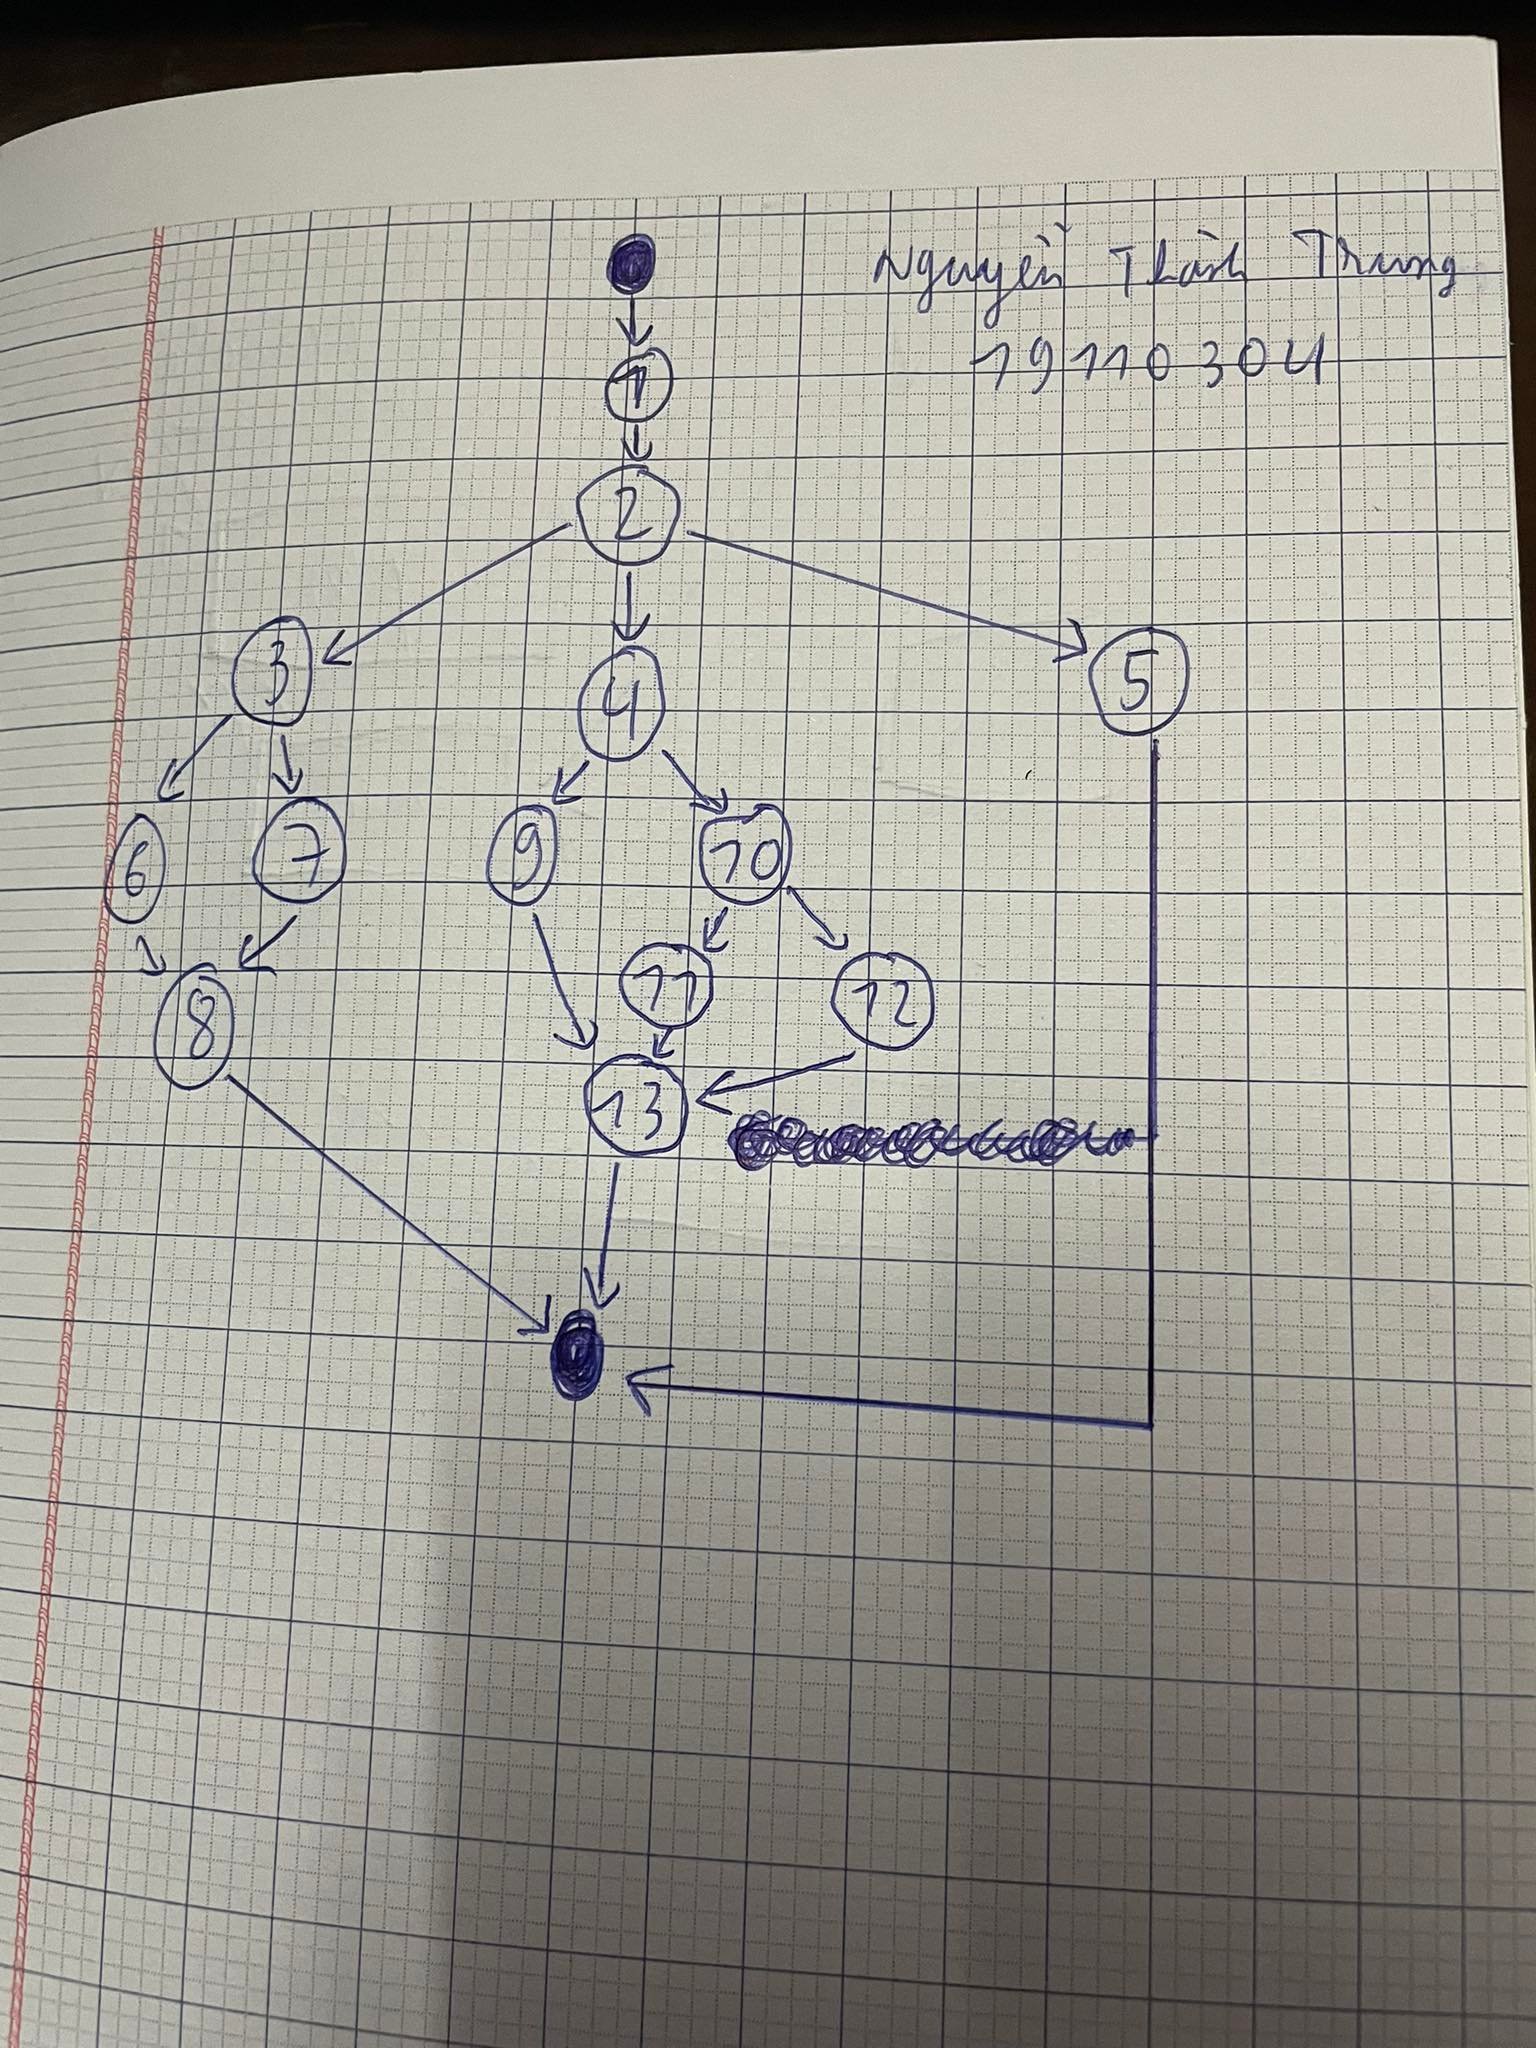 Nguyễn Thành Trung
19110304
1
2
3 4 5
6 7 9 10
8 11 12
13